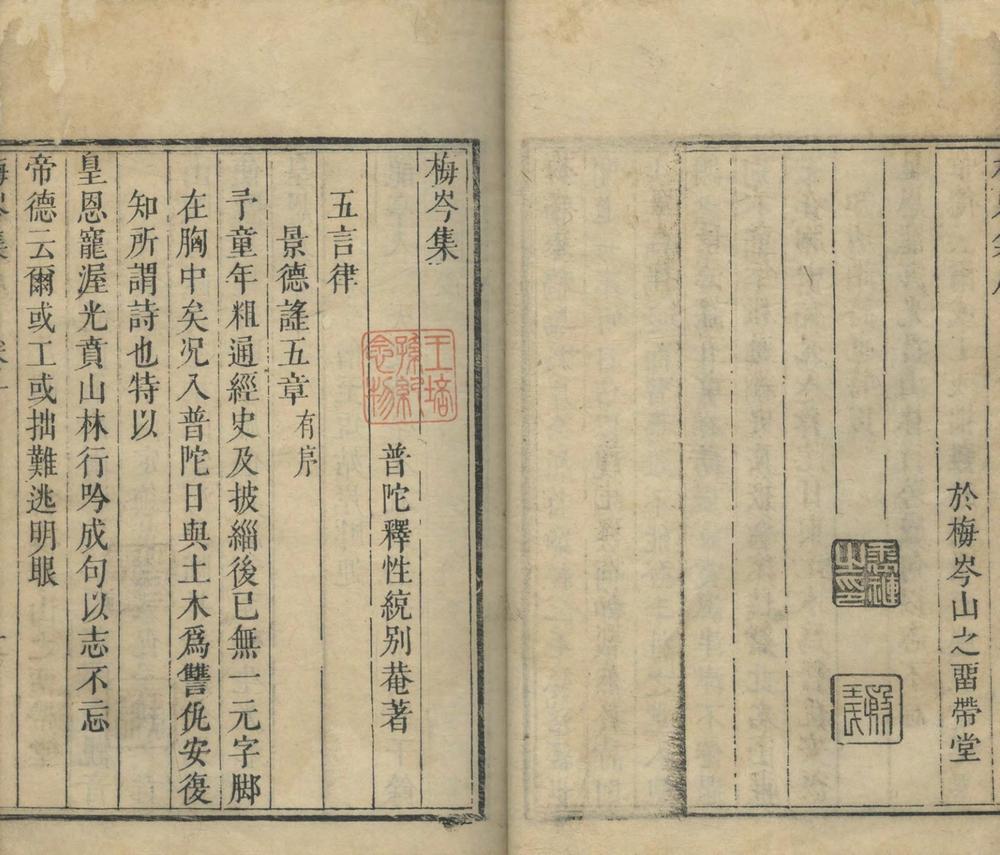 於梅岑山之畱帶堂
梅岑集
普陀釋性統別菴著
五言律
景德謠五章有序
予童年粗通經史及披緇後已無一元字脚
在胸中矣况入普陀日與土木爲讐仇安復
知所謂詩也特以
皇恩寵渥光賁山林行吟成句以志不忘
帝德云爾或工或拙難逃明眼
王培孫紀念物